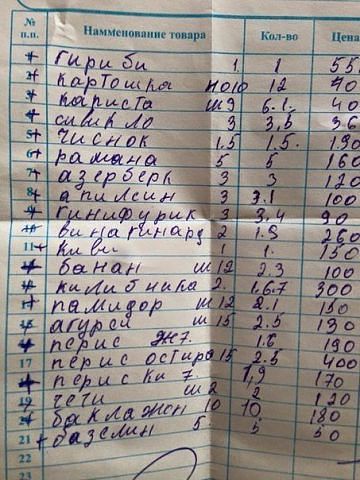 № п.п. Наимменование товара Кол-во Цена
1 гириби 1 1 55
2 картошка 10 12 40
3 каписта ш3 6.1. 40
4 свикло 3 3,5 36
5 чиснок 1,5 1.5. 190
6 рамана 5 5 160
7 азерберь 3 3 120
8 апилсин 3 3.1 100
9 гинифурик 3 3,4 90
10 винагинард 2 1.9 260
11 киви 1 1. 150
12 банан ш12 2.3 100
13 килибника 2. 1.6.7 300
14 памидор ш12 2.1 150
15 агурси ш15 2.5 130
16 перис ж7. 1.8 190
17 перис остира 15 2.5 400
18 периски 7. 1,9 170
19 чети ш2 2 120
20 баклажен 10 10 180
21 базелин 5. 5 50
22
23